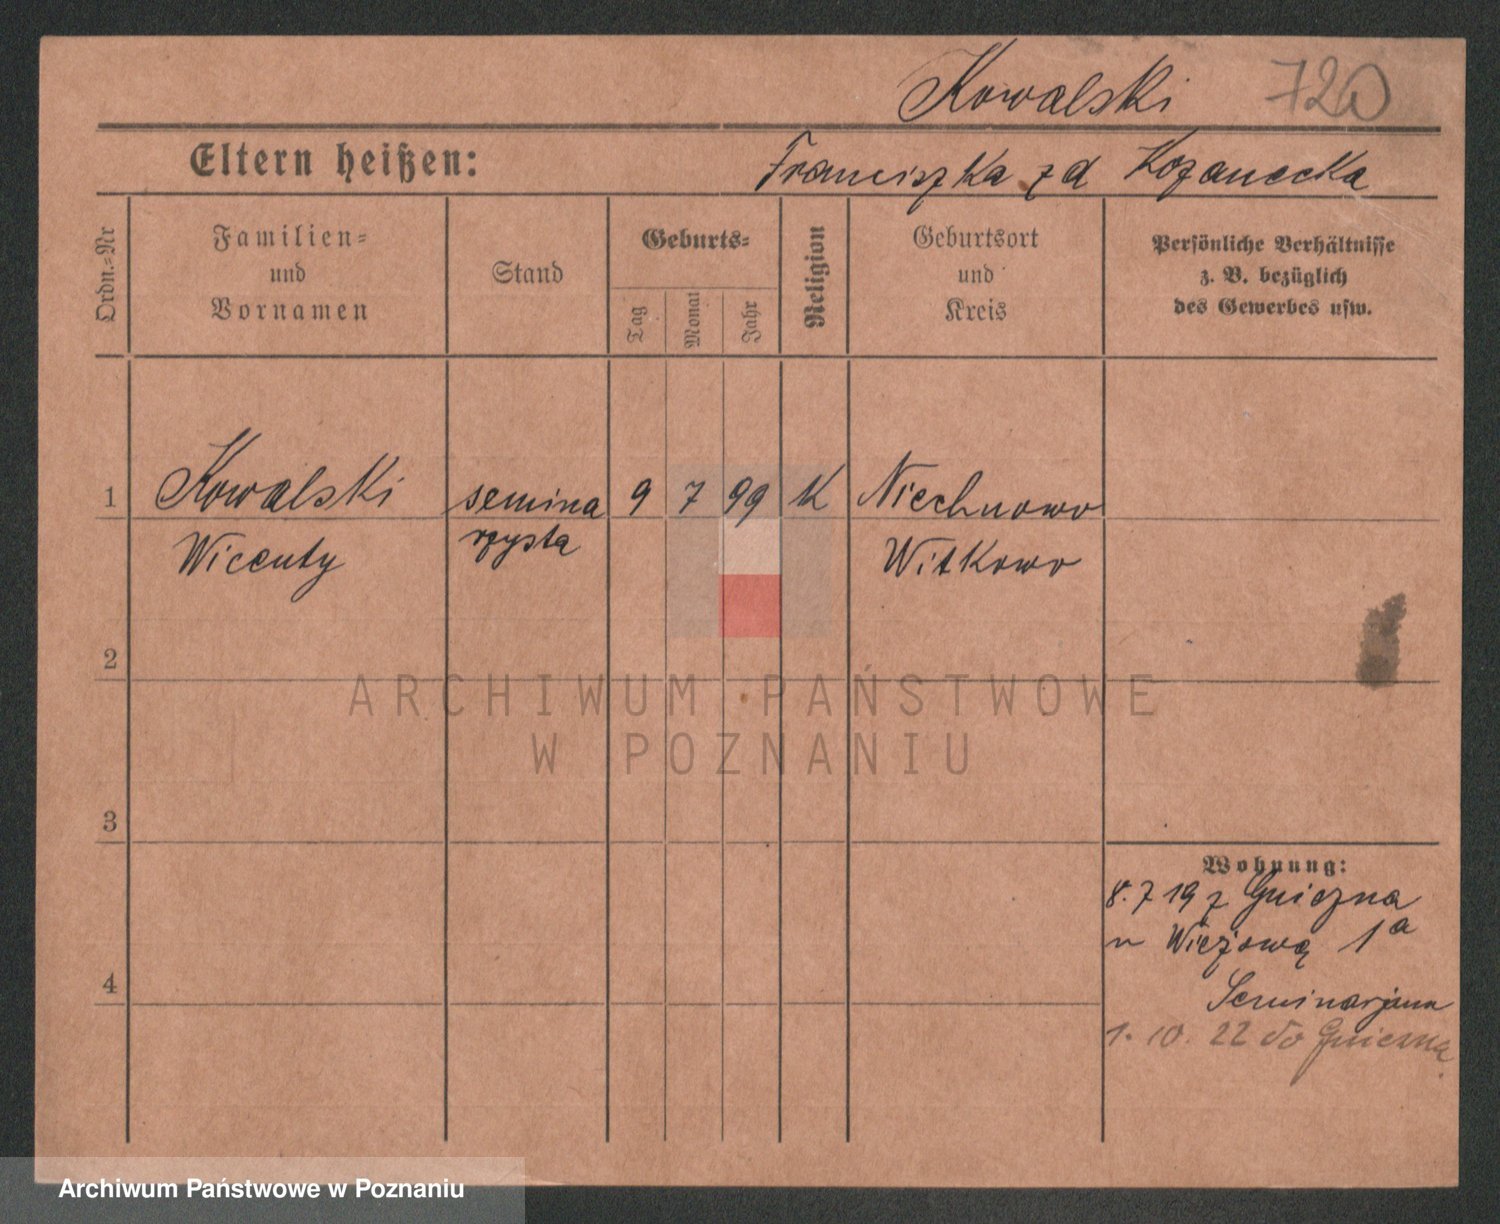 Kowalski 720
Eltern heißen:
Franciszka zd Kozanecka
Ordn.-Nr
Familien-
und
Vornamen
Stand
Geburts-
Tag
Monat
Jahr
Religion
Geburtsort
und
Kreis
Persönliche Verhältnisse
z. B. bezüglich
des Gewerbes usw.
1 Kowalski semina 9 7 99 K Niechnowo
Wicenty rzysta Witkowo
2
ARCHIWUM PAŃSTWOWE
W POZNANIU
3
Wohnung:
8. 7 19 z Gniezna
n Wieżową 1a
Seminarjum
4
1. 10. 22 do Gniezna
Archiwum Państwowe w Poznaniu